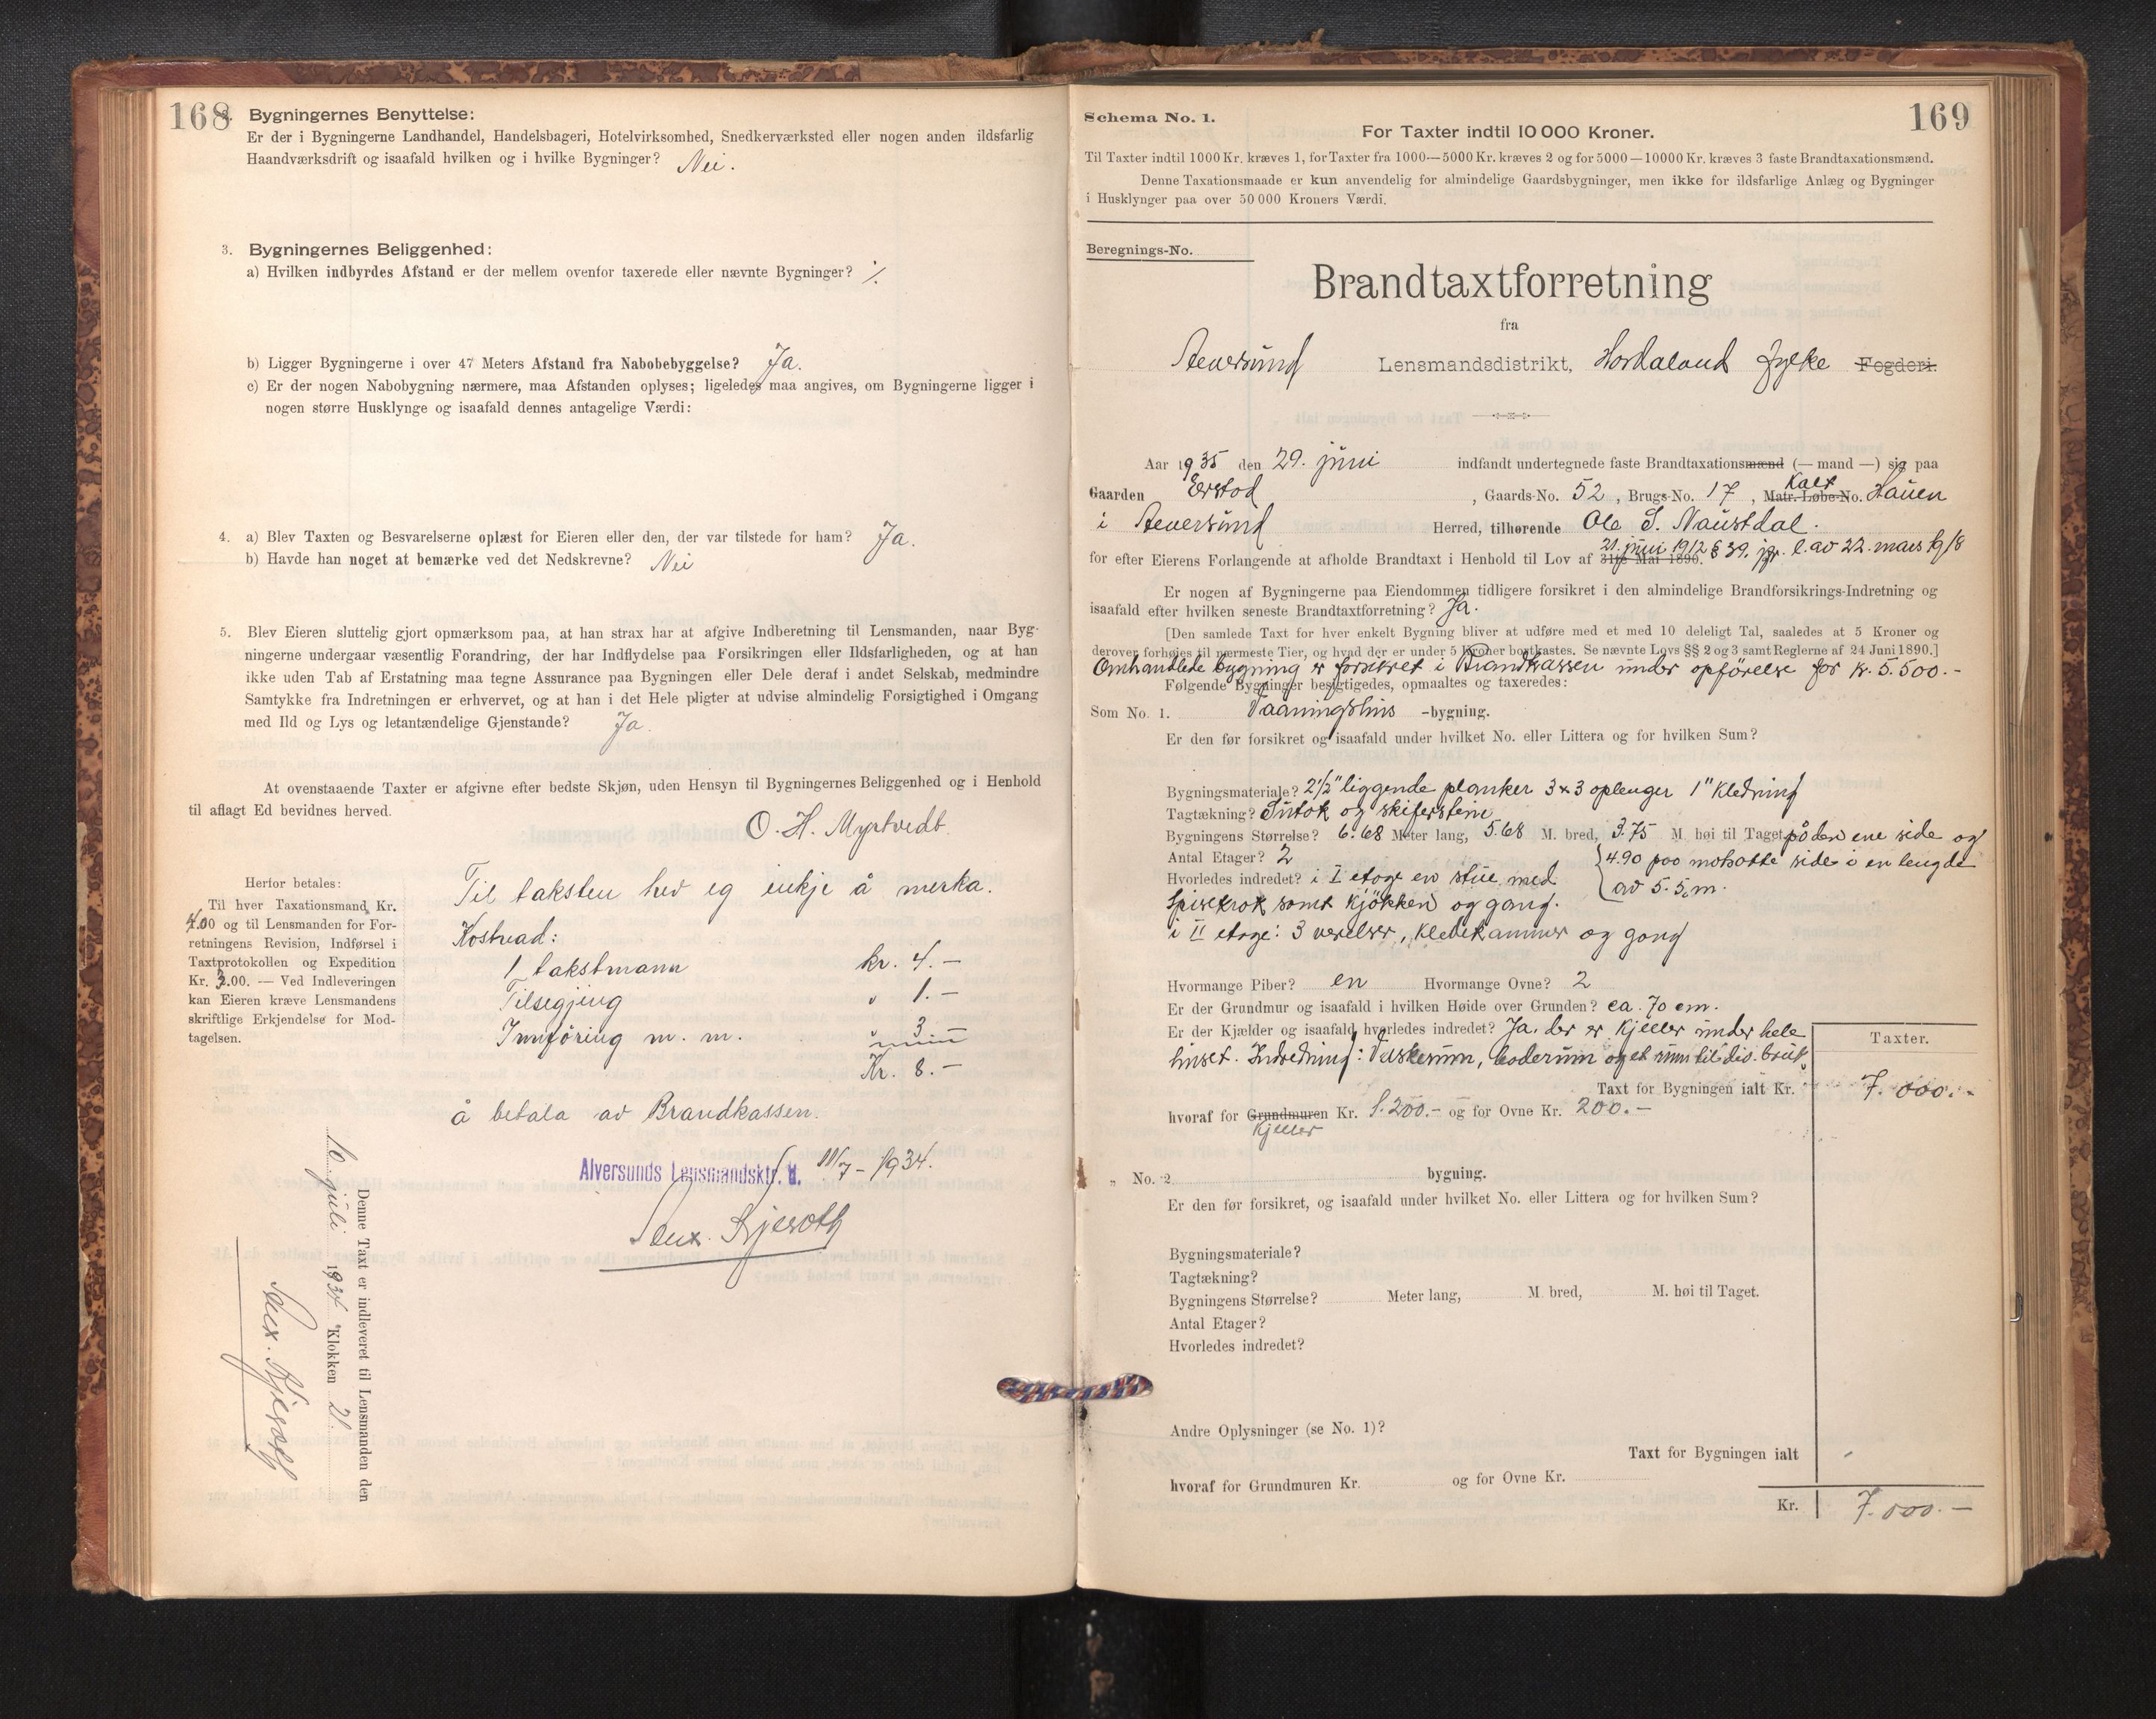 168
2. Bygningernes Benyttelse:
Er der i Bygningerne Landhandel, Handelsbageri, Hotelvirksomhed, Snedkerværksted eller nogen anden ildsfarlig
Haandværksdrift og isaafald hvilken og i hvilke Bygninger? Nei.
3. Bygningernes Beliggenhed:
a) Hvilken indbyrdes Afstand er der mellem ovenfor taxerede eller nævnte Bygninger? ⁒
b) Ligger Bygningerne i over 47 Meters Afstand fra Nabobebyggelse? Ja.
c) Er der nogen Nabobygning nærmere, maa Afstanden oplyses; ligeledes maa angives, om Bygningerne ligger i
nogen større Husklynge og isaafald dennes antagelige Værdi:
4. a) Blev Taxten og Besvarelserne oplæst for Eieren eller den, der var tilstede for ham? Ja.
b) Havde han noget at bemærke ved det Nedskrevne? Nei
5. Blev Eieren sluttelig gjort opmærksom paa, at han strax har at afgive Indberetning til Lensmanden, naar Byg-
ningerne undergaar væsentlig Forandring, der har Indflydelse paa Forsikringen eller Ildsfarligheden, og at han
ikke uden Tab af Erstatning maa tegne Assurance paa Bygningen eller Dele deraf i andet Selskab, medmindre
Samtykke fra Indretningen er erhvervet, og at han i det Hele pligter at udvise almindelig Forsigtighed i Omgang
med Ild og Lys og letantændelige Gjenstande? Ja.
At ovenstaaende Taxter er afgivne efter bedste Skjøn, uden Hensyn til Bygningernes Beliggenhed og i Henhold
til aflagt Ed bevidnes herved.
O. H. Myrtvedt.
Herfor betales:
Til hver Taxationsmand Kr.
4.00 og til Lensmanden for For-
retningens Revision, Indførsel i
Taxtprotokollen og Expedition
Kr. 3.00. — Ved Indleveringen
kan Eieren kræve Lensmandens
skriftlige Erkjendelse for Mod-
tagelsen.
Til taksten hev eg inkje å merka.
Kostnad:
1 takstmann kr. 4.—
Tilsegjing " 1.—
Innføring m. m. " 3.—
Kr. 8.—
å betala av Brandkassen.
Alversunds Lensmandsktr. d. 11/7 - 1934.
Denne Taxt er indleveret til Lensmanden den
10 juli 1934 Klokken 21.
169
Schema No. 1.
For Taxter indtil 10 000 Kroner.
Til Taxter indtil 1000 Kr. kræves 1, for Taxter fra 1000—5000 Kr. kræves 2 og for 5000—10000 Kr. kræves 3 faste Brandtaxationsmænd.
Denne Taxationsmaade er kun anvendelig for almindelige Gaardsbygninger, men ikke for ildsfarlige Anlæg og Bygninger
i Husklynger paa over 50 000 Kroners Værdi.
Beregnings-No.
Brandtaxtforretning
fra
Alversund Lensmandsdistrikt, Hordaland fylke Fogderi.
Aar 1935 den 29. juni indfandt undertegnede faste Brandtaxationsmænd (— mand —) sig paa
Gaarden , Gaards-No. 52, Brugs-No. 17, Matr.-Løbe-No. Kalt Hauen
i Alversund Herred, tilhørende Ole S. Naustdal.
for efter Eierens Forlangende at afholde Brandtaxt i Henhold til Lov af 31te Mai 1890. 21. juni 1912 § 39. jfr. l. av 22. mars 1918
Er nogen af Bygningerne paa Eiendommen tidligere forsikret i den almindelige Brandforsikrings-Indretning og
isaafald efter hvilken seneste Brandtaxtforretning? Ja.
[Den samlede Taxt for hver enkelt Bygning bliver at udføre med et med 10 deleligt Tal, saaledes at 5 Kroner og
derover forhøies til nærmeste Tier, og hvad der er under 5 Kroner bortkastes. Se nævnte Lovs §§ 2 og 3 samt Reglerne af 24 Juni 1890.]
Omhandlede bygning er forsikret i Brandkassen under opførelse for kr. 5.500.-
Følgende Bygninger besigtigedes, opmaaltes og taxeredes:
Som No. 1. Vaaningshus -bygning.
Er den før forsikret og isaafald under hvilket No. eller Littera og for hvilken Sum?
Bygningsmateriale? 2½" liggende planker 3x3 oplenger 1" kledning
Tagtækning? Sutak og skiferstein
Bygningens Størrelse? 6.68 Meter lang, 5.68 M. bred, 3.75 M. høi til Taget på den ene side og
Antal Etager? 2 4.90 paa motsatte side i en lengde
Hvorledes indredet? i I etage en stue med av 5.5 m.
spisekrok samt kjøkken og gang.
i II etage: 3 værelser, kledekammer og gang
Hvormange Piber? en Hvormange Ovne? 2
Er der Grundmur og isaafald i hvilken Høide over Grunden? ca. 70 cm.
Er der Kjælder og isaafald hvorledes indredet? Ja, der er kjeller under hele
huset. Indredning: Vaskerum, boderum og et rum til div. bruk.
Taxter.
Taxt for Bygningen ialt Kr. 7.000.-
hvoraf for Grundmuren Kr. 1.200.- og for Ovne Kr. 200.-
kjeller
" No. 2 bygning.
Er den før forsikret, og isaafald under hvilket No. eller Littera og for hvilken Sum?
Bygningsmateriale?
Tagtækning?
Bygningens Størrelse? Meter lang, M. bred, M. høi til Taget.
Antal Etager?
Hvorledes indredet?
Andre Oplysninger (se No. 1)?
Taxt for Bygningen ialt -
hvoraf for Grundmuren Kr. og for Ovne Kr.
Kr. 7.000.-